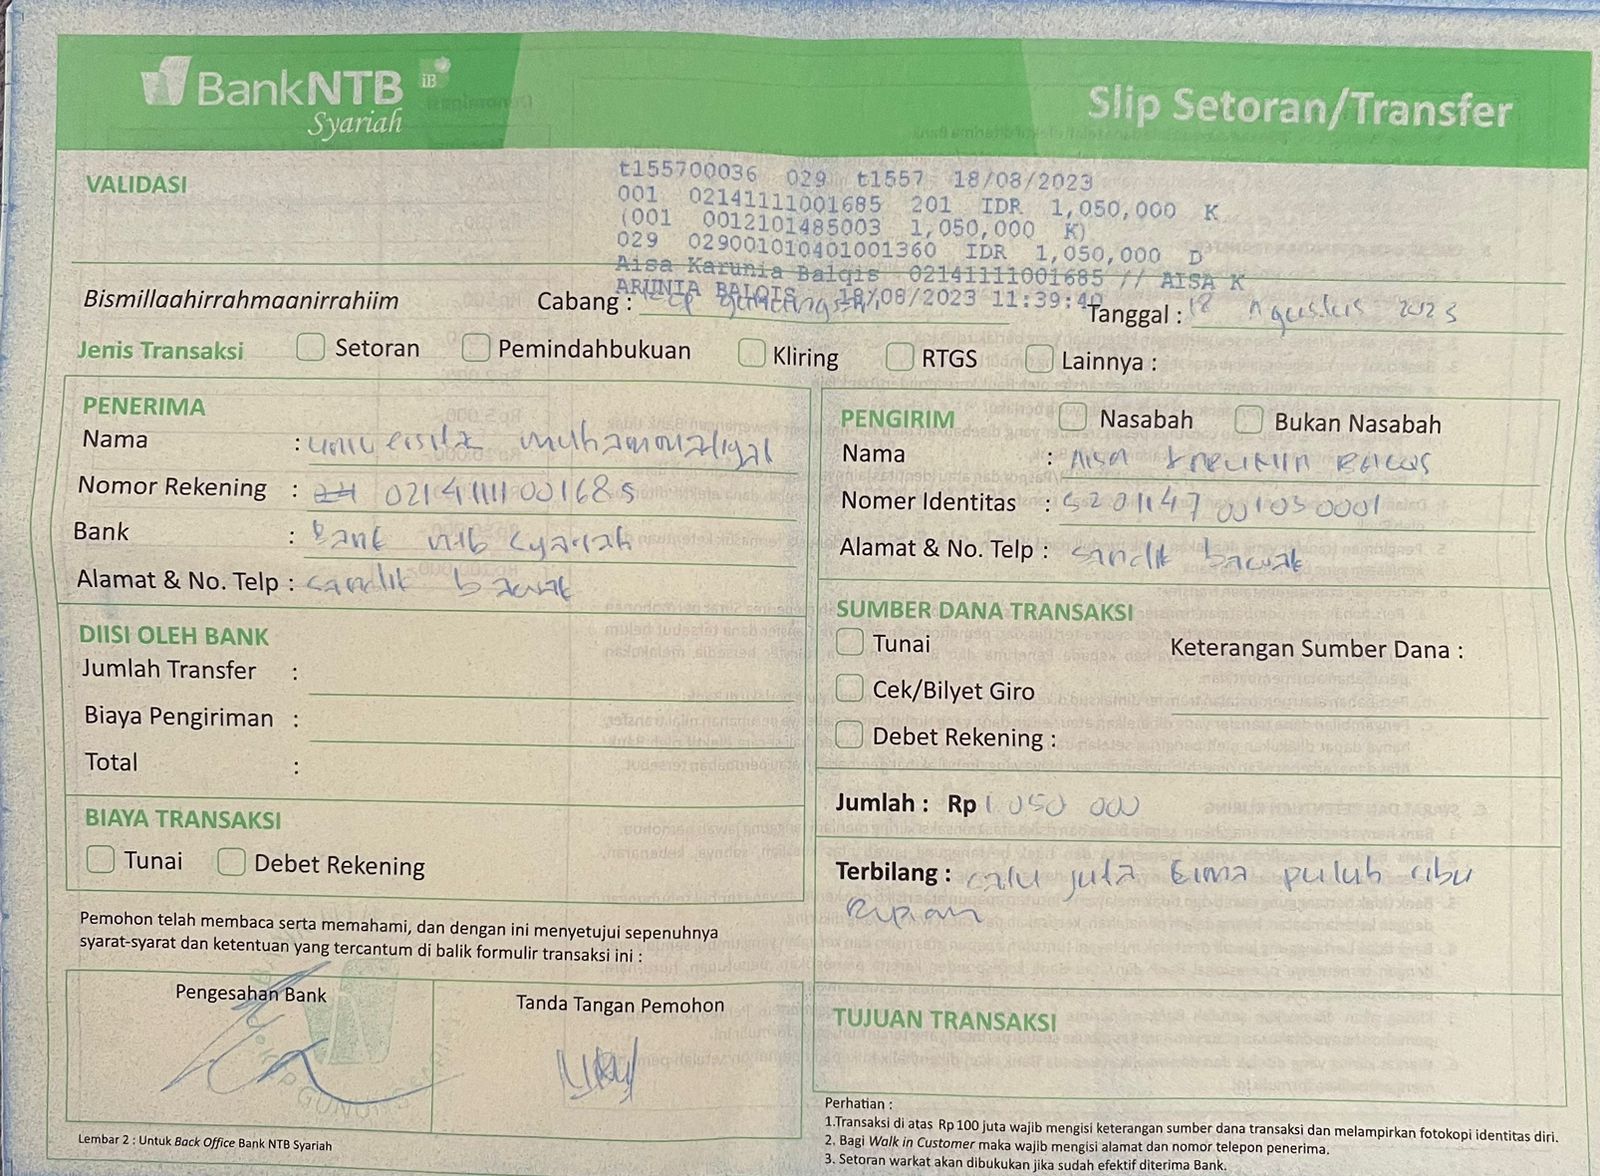 BankNTB iB
Syariah
Slip Setoran/Transfer
VALIDASI
t155700036 029 t1557 18/08/2023
001 02141111001685 201 IDR 1,050,000 K
(001 0012101485003 1,050,000 K)
029 029001010401001360 IDR 1,050,000 D
Aisa Karunia Balqis 02141111001685 // AISA K
ARUNIA BALQIS 18/08/2023 11:39:40
Bismillaahirrahmaanirrahiim
Cabang :
Tanggal : 18 Agustus 2023
Jenis Transaksi Setoran Pemindahbukuan Kliring RTGS Lainnya :
PENERIMA
Nama : universitas muhammadiyah
Nomor Rekening : 02141111001685
Bank : Bank ntb syariah
Alamat & No. Telp : sandik bawak
DIISI OLEH BANK
Jumlah Transfer :
Biaya Pengiriman :
Total :
BIAYA TRANSAKSI
Tunai Debet Rekening
Pemohon telah membaca serta memahami, dan dengan ini menyetujui sepenuhnya
syarat-syarat dan ketentuan yang tercantum di balik formulir transaksi ini :
Pengesahan Bank
Tanda Tangan Pemohon
Lembar 2 : Untuk Back Office Bank NTB Syariah
PENGIRIM Nasabah Bukan Nasabah
Nama : AISA KARUNIA BALQIS
Nomer Identitas : 5201147001050001
Alamat & No. Telp : sandik bawak
SUMBER DANA TRANSAKSI
Tunai
Keterangan Sumber Dana :
Cek/Bilyet Giro
Debet Rekening :
Jumlah : Rp 1.050 000
Terbilang : satu juta lima puluh ribu
Rupiah
TUJUAN TRANSAKSI
Perhatian :
1.Transaksi di atas Rp 100 juta wajib mengisi keterangan sumber dana transaksi dan melampirkan fotokopi identitas diri.
2. Bagi Walk in Customer maka wajib mengisi alamat dan nomor telepon penerima.
3. Setoran warkat akan dibukukan jika sudah efektif diterima Bank.